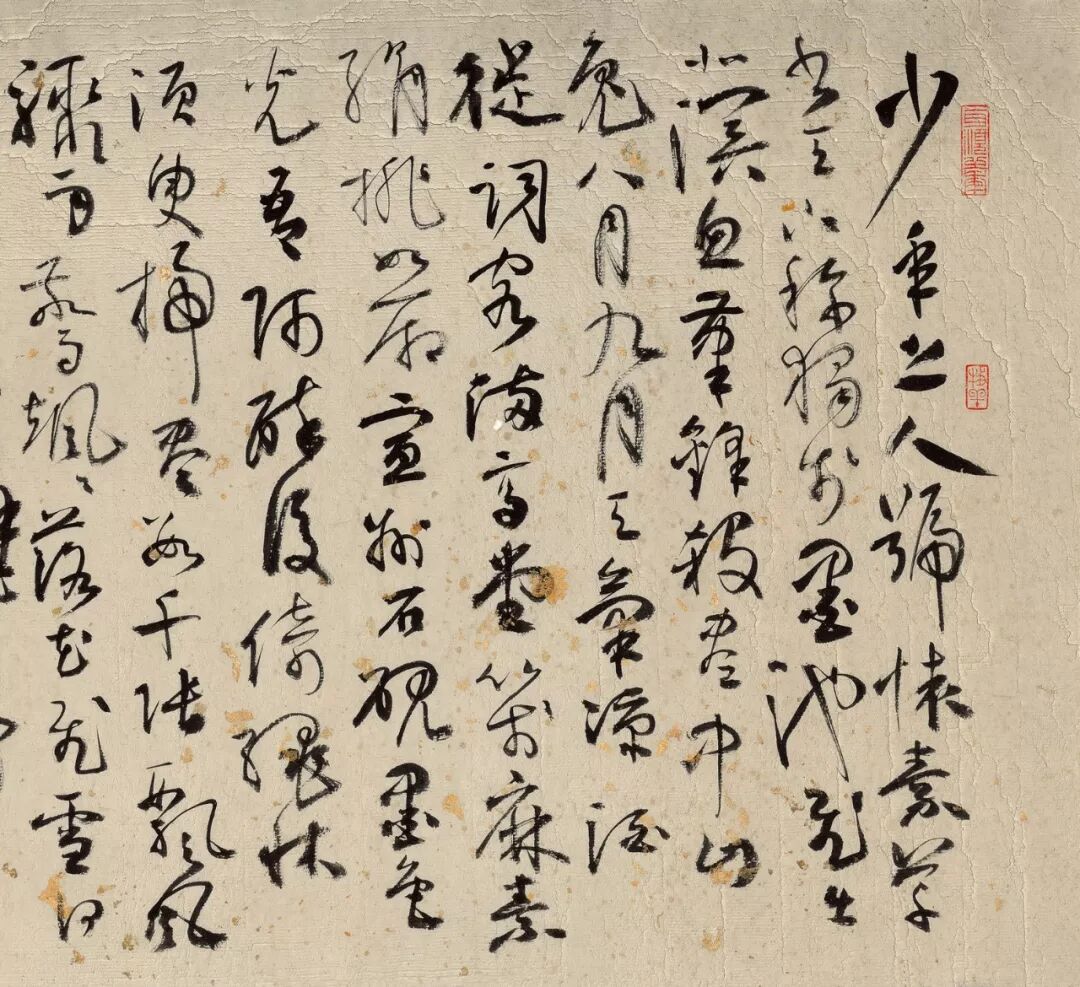 少年上人號懷素草
書天下稱獨步墨池飛出
北溟魚筆鋒殺盡中山
兔八月九月天氣涼酒
徒詞客滿高堂箋麻素
絹排數廂宣州石硯墨色
光吾師醉後倚繩床
須臾掃盡數千張飄風
驟雨驚颯〻落花飛雪何